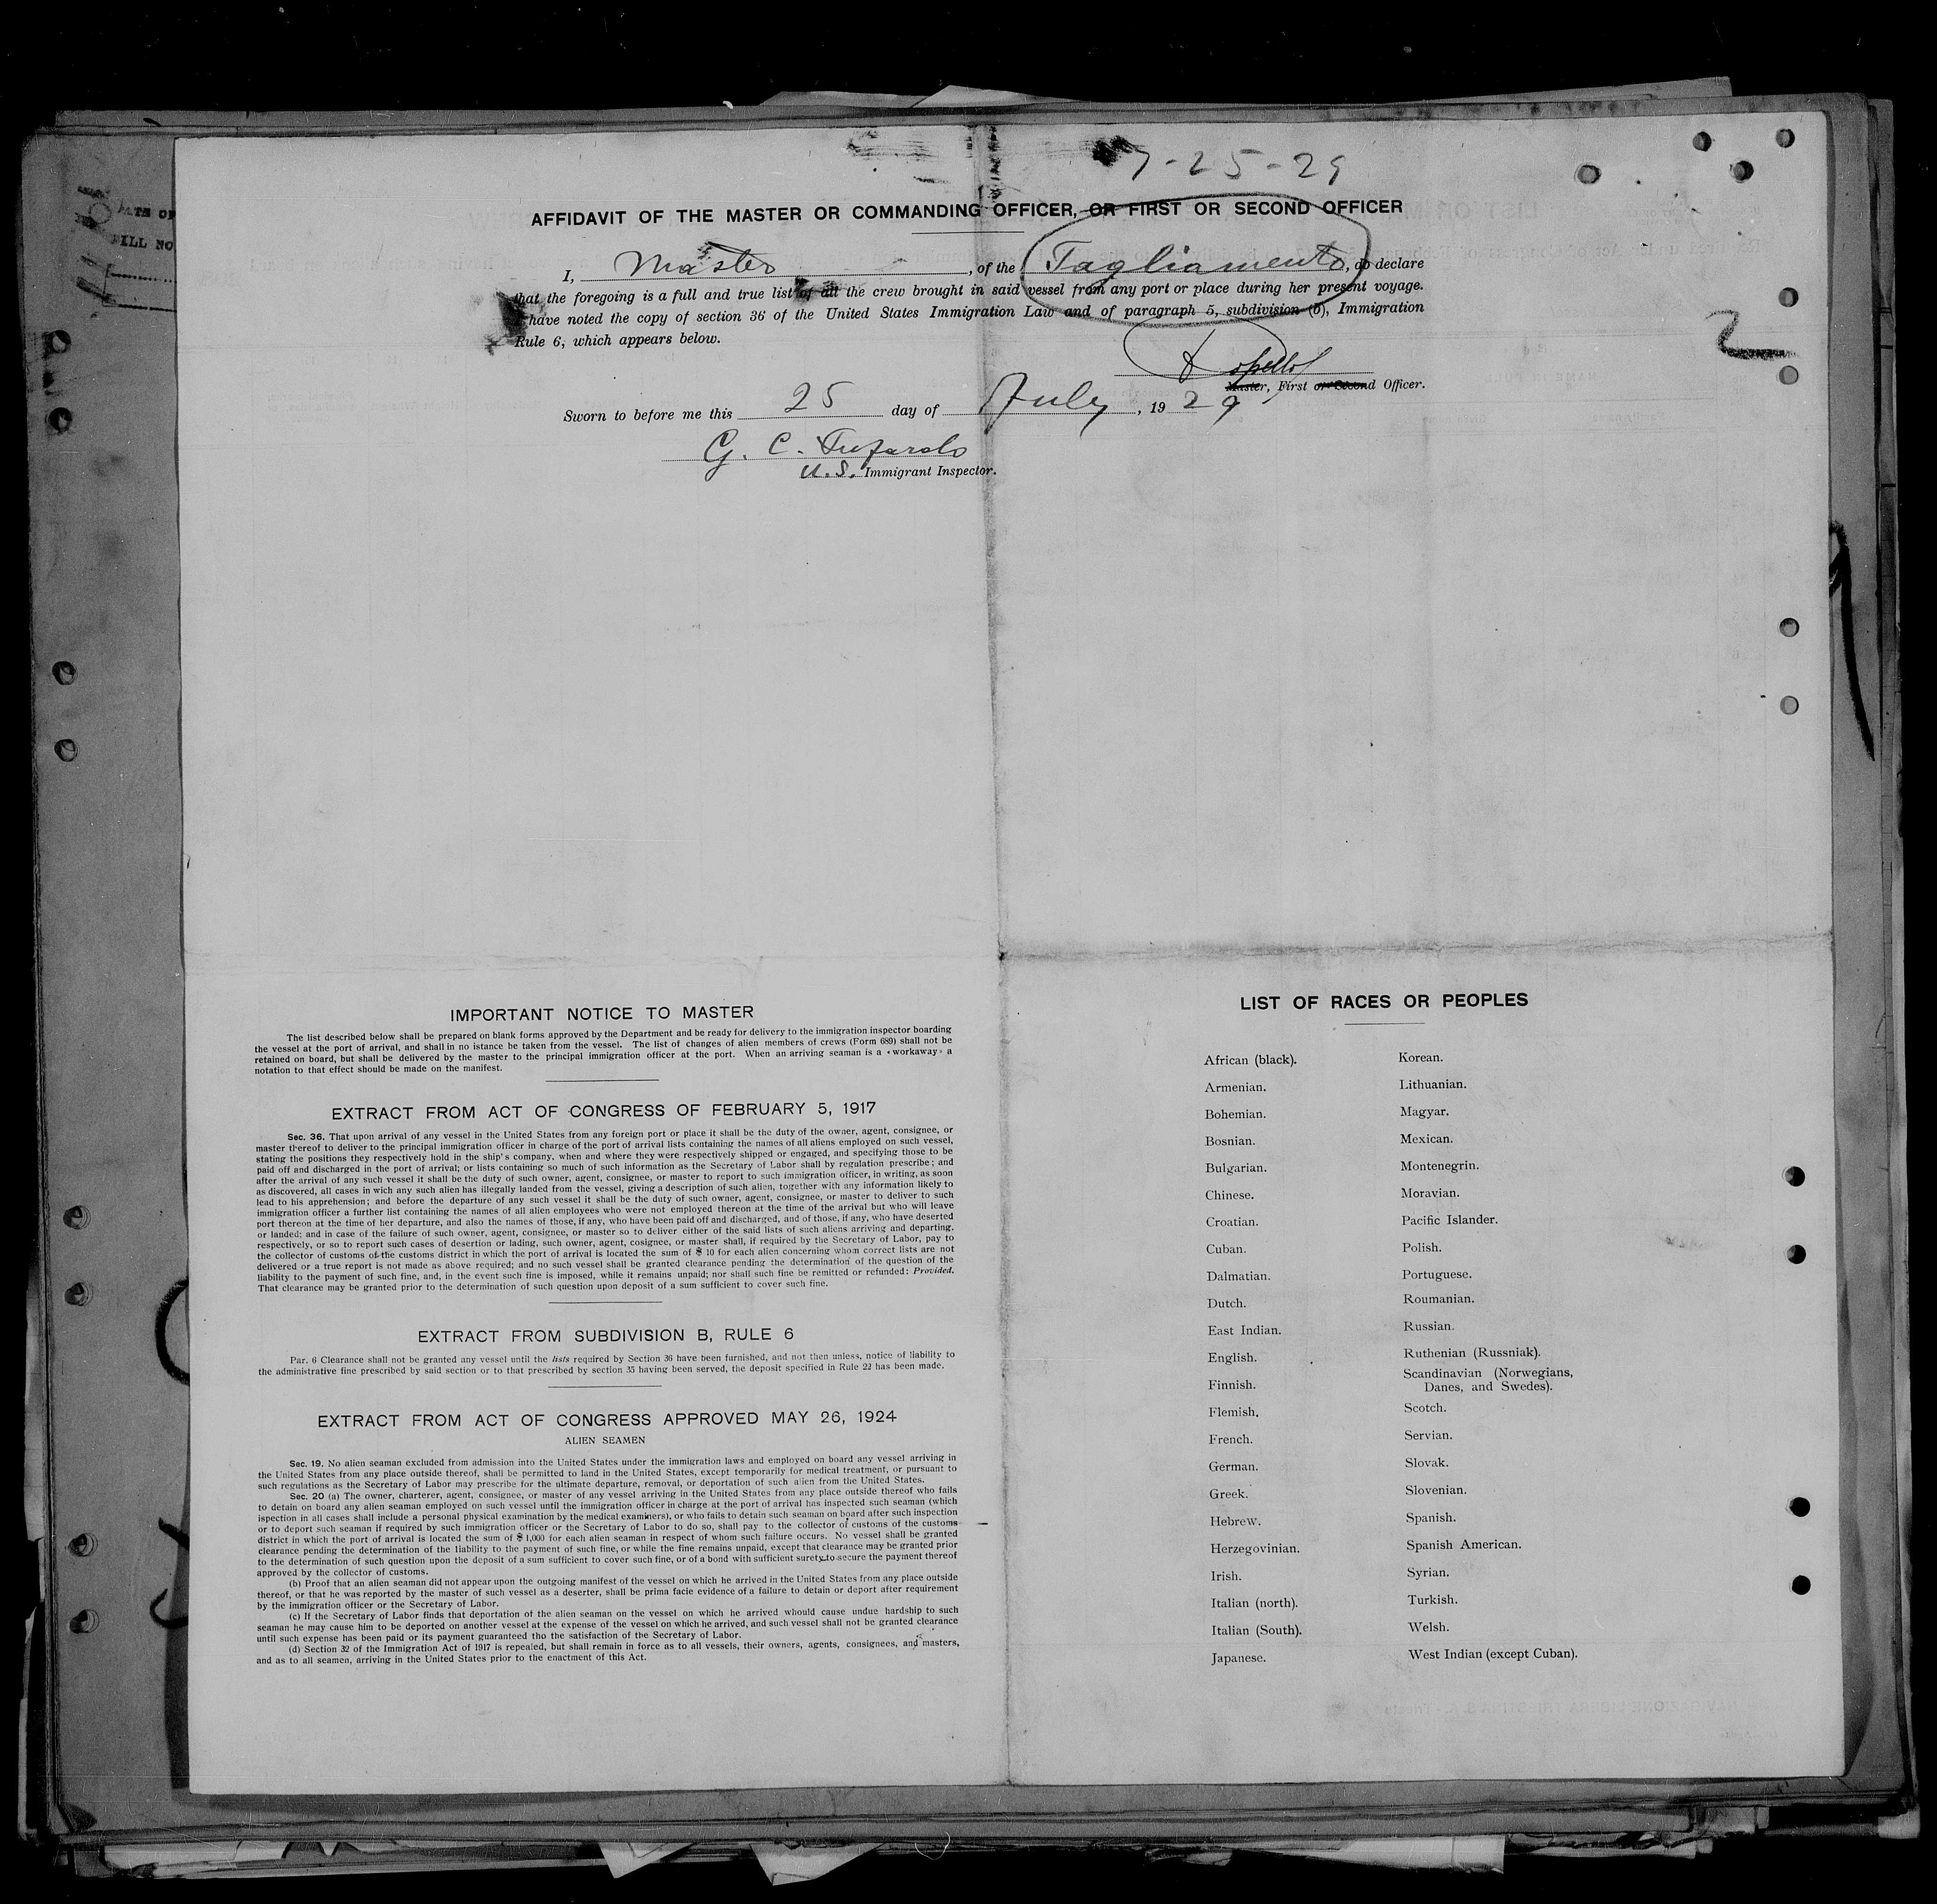 7-25-29
AFFIDAVIT OF THE MASTER OR COMMANDING OFFICER, OR FIRST OR SECOND OFFICER
I, Master, of the Tagliamento, do declare
that the foregoing is a full and true list of all the crew brought in said vessel from any port or place during her present voyage.
I have noted the copy of section 36 of the United States Immigration Law and of paragraph 5, subdivision (b), Immigration
Rule 6, which appears below.
2
Master, First or Second Officer.
Sworn to before me this 25 day of July, 1929
G. C.
U.S. Immigrant Inspector.
IMPORTANT NOTICE TO MASTER
The list described below shall be prepared on blank forms approved by the Department and be ready for delivery to the immigration inspector boarding
the vessel at the port of arrival, and shall in no istance be taken from the vessel. The list of changes of alien members of crews (Form 689) shall not be
retained on board, but shall be delivered by the master to the principal immigration officer at the port. When an arriving seaman is a «workaway» a
notation to that effect should be made on the manifest.
EXTRACT FROM ACT OF CONGRESS OF FEBRUARY 5, 1917
Sec. 36. That upon arrival of any vessel in the United States from any foreign port or place it shall be the duty of the owner, agent, consignee, or
master thereof to deliver to the principal immigration officer in charge of the port of arrival lists containing the names of all aliens employed on such vessel,
stating the positions they respectively hold in the ship's company, when and where they were respectively shipped or engaged, and specifying those to be
paid off and discharged in the port of arrival; or lists containing so much of such information as the Secretary of Labor shall by regulation prescribe; and
after the arrival of any such vessel it shall be the duty of such owner, agent, consignee, or master to report to such immigration officer, in writing, as soon
as discovered, all cases in wich any such alien has illegally landed from the vessel, giving a description of such alien, together with any information likely to
lead to his apprehension; and before the departure of any such vessel it shall be the duty of such owner, agent, consignee, or master to deliver to such
immigration officer a further list containing the names of all alien employees who were not employed thereon at the time of the arrival but who will leave
port thereon at the time of her departure, and also the names of those, if any, who have been paid off and discharged, and of those, if any, who have deserted
or landed; and in case of the failure of such owner, agent, consignee, or master so to deliver either of the said lists of such aliens arriving and departing.
respectively, or so to report such cases of desertion or lading, such owner, agent, cosignee, or master shall, if required by the Secretary of Labor, pay to
the collector of customs of the customs district in which the port of arrival is located the sum of $ 10 for each alien concerning whom correct lists are not
delivered or a true report is not made as above required; and no such vessel shall be granted clearance pending the determination of the question of the
liability to the payment of such fine, and, in the event such fine is imposed, while it remains unpaid; nor shall such fine be remitted or refunded: Provided.
That clearance may be granted prior to the determination of such question upon deposit of a sum sufficient to cover such fine.
EXTRACT FROM SUBDIVISION B, RULE 6
Par. 6 Clearance shall not be granted any vessel until the lists required by Section 36 have been furnished, and not then unless, notice of liability to
the administrative fine prescribed by said section or to that prescribed by section 35 having been served, the deposit specified in Rule 22 has been made.
EXTRACT FROM ACT OF CONGRESS APPROVED MAY 26, 1924
ALIEN SEAMEN
Sec. 19. No alien seaman excluded from admission into the United States under the immigration laws and employed on board any vessel arriving in
the United States from any place outside thereof, shall be permitted to land in the United States, except temporarily for medical treatment, or pursuant to
such regulations as the Secretary of Labor may prescribe for the ultimate departure, removal, or deportation of such alien from the United States.
Sec. 20 (a) The owner, charterer, agent, consignee, or master of any vessel arriving in the United States from any place outside thereof who fails
to detain on board any alien seaman employed on such vessel until the immigration officer in charge at the port of arrival has inspected such seaman (which
ispection in all cases shall include a personal physical examination by the medical examiners), or who fails to detain such seaman on board after such inspection
or to deport such seaman if required by such immigration officer or the Secretary of Labor to do so, shall pay to the collector of customs of the customs
district in which the port of arrival is located the sum of $ 1,000 for each alien seaman in respect of whom such failure occurs. No vessel shall be granted
clearance pending the determination of the liability to the payment of such fine, or while the fine remains unpaid, except that clearance may be granted prior
to the determination of such question upon the deposit of a sum sufficient to cover such fine, or of a bond with sufficient surety to secure the payment thereof
approved by the collector of customs.
(b) Proof that an alien seaman did not appear upon the outgoing manifest of the vessel on which he arrived in the United States from any place outside
thereof, or that he was reported by the master of such vessel as a deserter, shall be prima facie evidence of a failure to detain or deport after requirement
by the immigration officer or the Secretary of Labor.
(c) If the Secretary of Labor finds that deportation of the alien seaman on the vessel on which he arrived whould cause undue hardship to such
seaman he may cause him to be deported on another vessel at the expense of the vessel on which he arrived, and such vessel shall not be granted clearance
until such expense has been paid or its payment guaranteed tho the satisfaction of the Secretary of Labor.
(d) Section 32 of the Immigration Act of 1917 is repealed, but shall remain in force as to all vessels, their owners, agents, consignees, and masters,
and as to all seamen, arriving in the United States prior to the enactment of this Act.
LIST OF RACES OR PEOPLES
African (black).
Armenian.
Bohemian.
Bosnian.
Bulgarian.
Chinese.
Croatian.
Cuban.
Dalmatian.
Dutch.
East Indian.
English.
Finnish.
Flemish.
French.
German.
Greek.
Hebrew.
Herzegovinian.
Irish.
Italian (north).
Italian (South).
Japanese.
Korean.
Lithuanian.
Magyar.
Mexican.
Montenegrin.
Moravian.
Pacific Islander.
Polish.
Portuguese.
Roumanian.
Russian.
Ruthenian (Russniak).
Scandinavian (Norwegians,
Danes, and Swedes).
Scotch.
Servian.
Slovak.
Slovenian.
Spanish.
Spanish American.
Syrian.
Turkish.
Welsh.
West Indian (except Cuban).